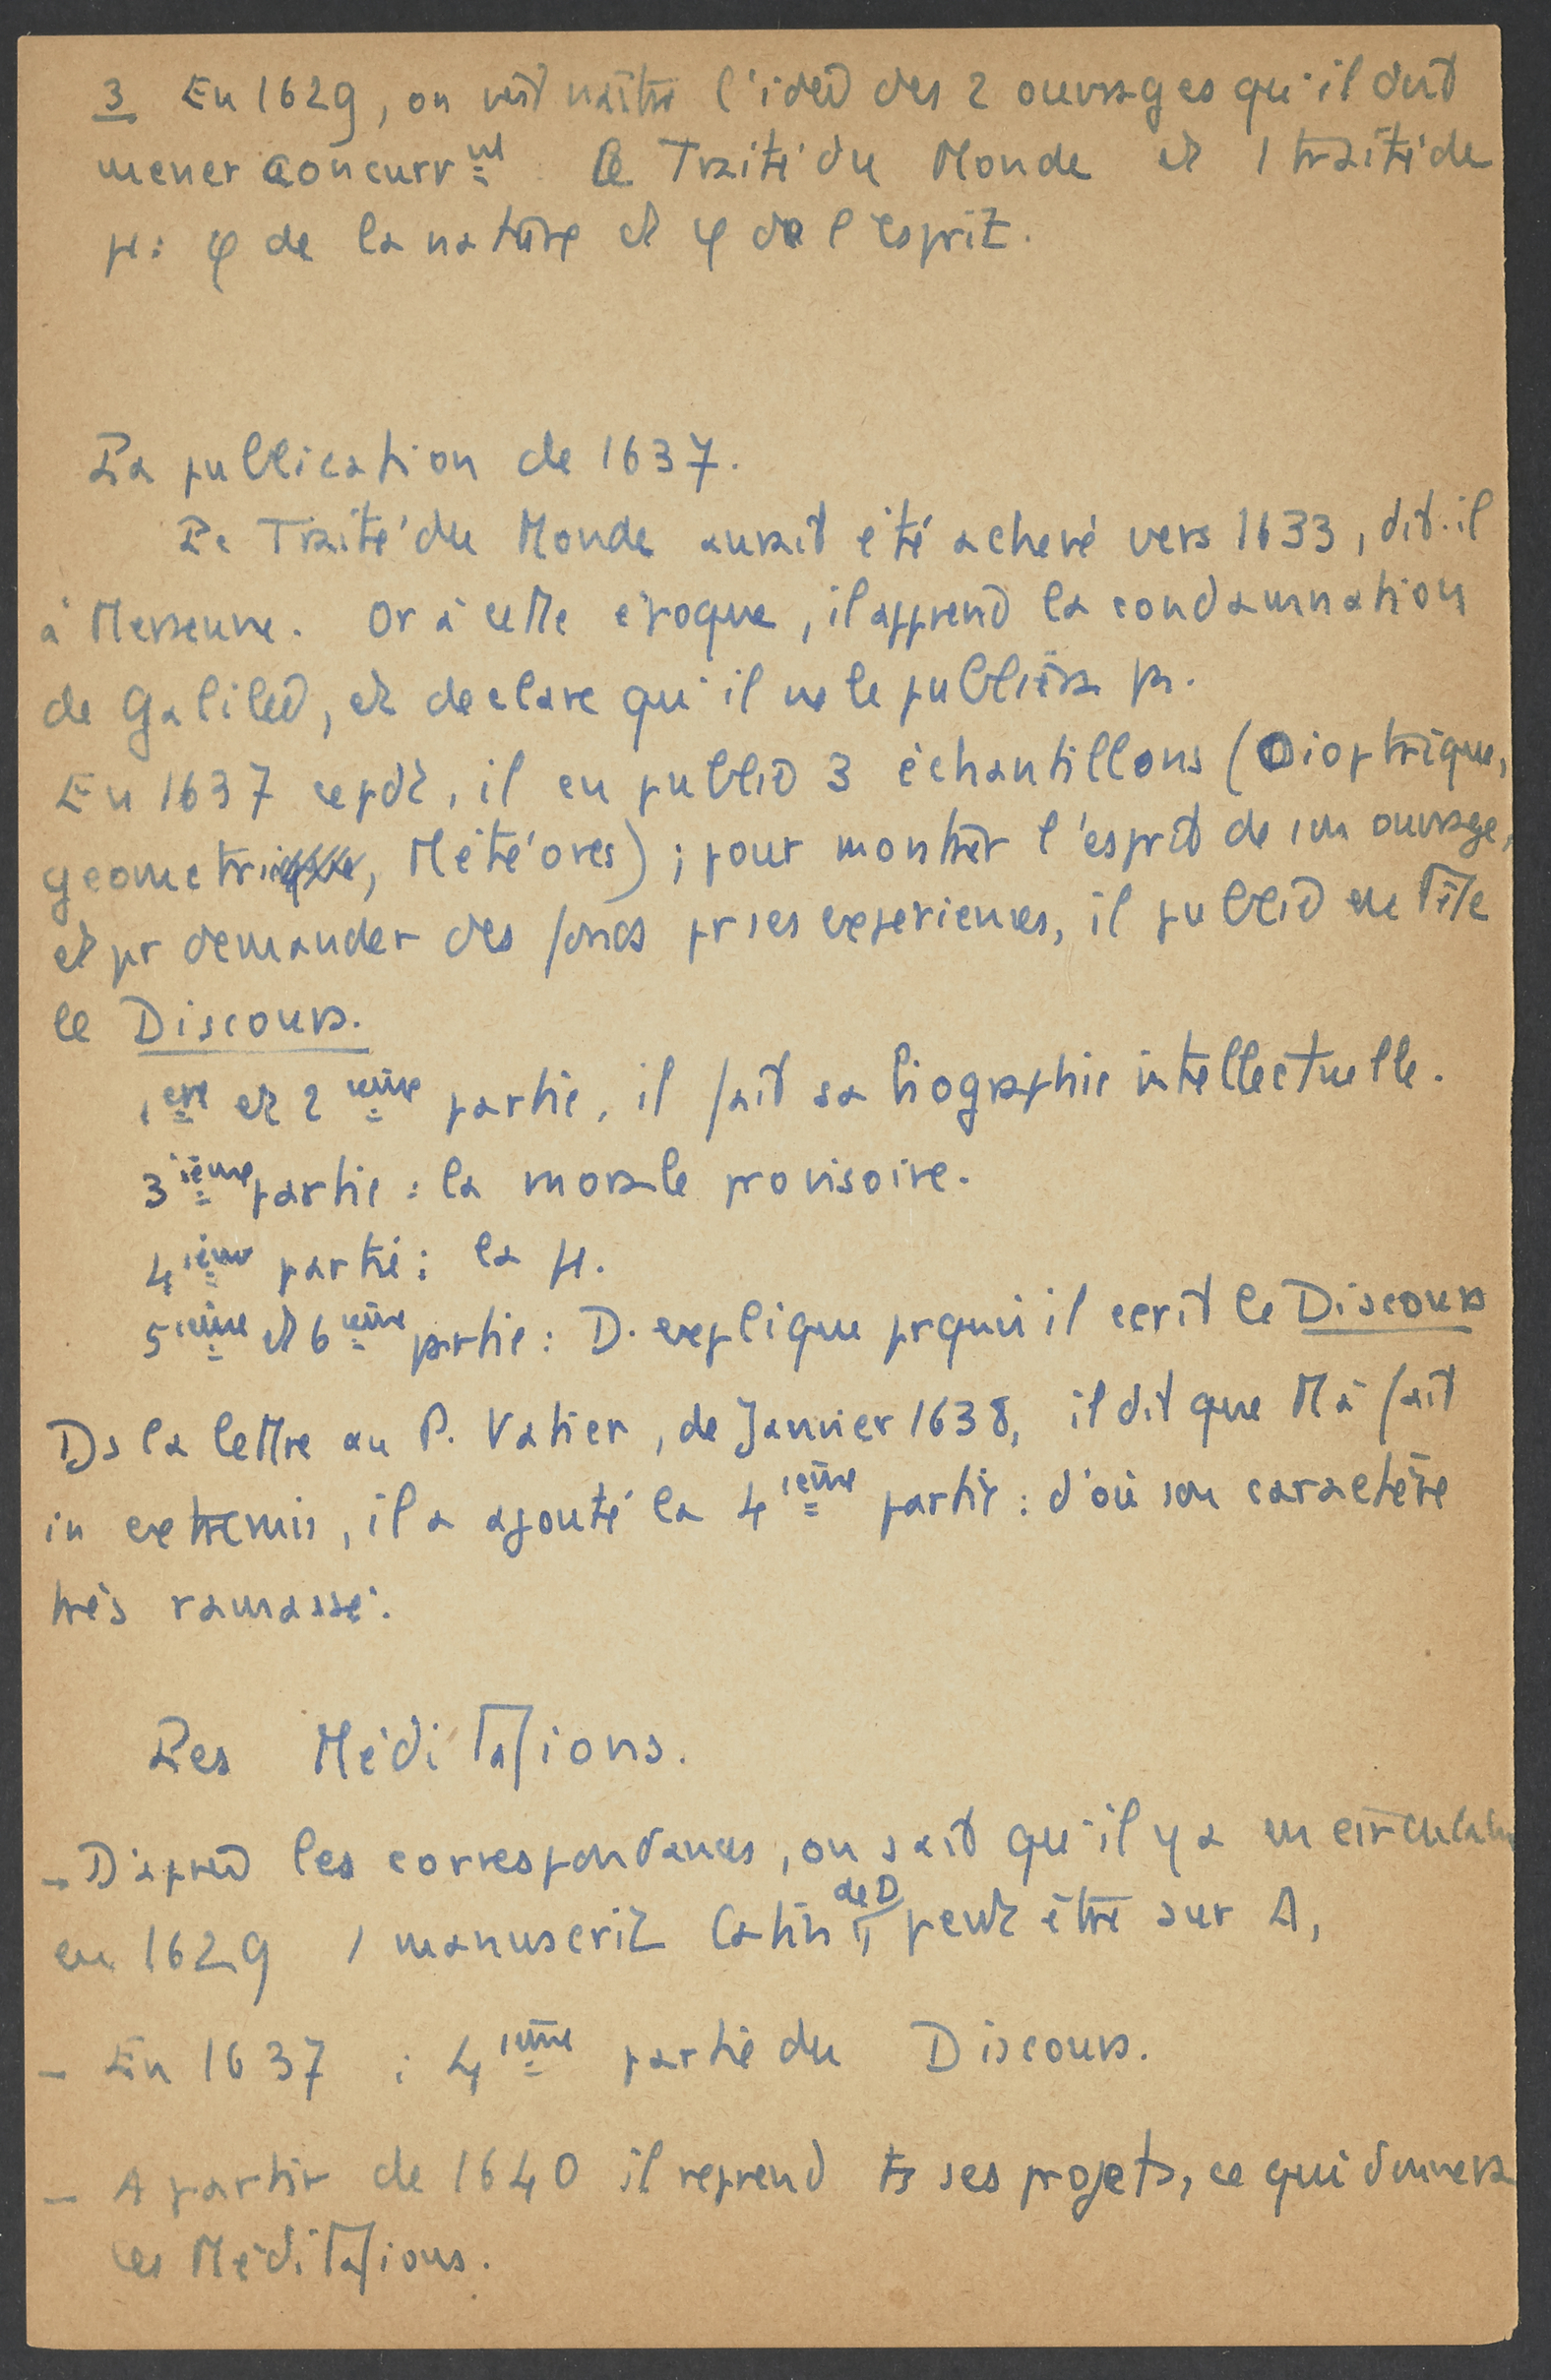 3 En 1629, on voit naître l'idée des 2 ouvrages qu'il doit
mener concurrnt. Le Traité du Monde et 1 traité de
μ: φ de la nature et φ de l'esprit.
La publication de 1637.
Le Traité du Monde aurait été achevé vers 1633, dit-il
à Mersenne. Or à cette époque, il apprend la condamnation
de Galilée, et declare qu'il ne le publiera ps.
En 1637 cepdt, il en publie 3 échantillons (Dioptrique,
geometrie, Météores) ; pour montrer l'esprit de son ouvrage,
et pr demander des fonds pr ses experiences, il publie en tête
le Discours.
1ere et 2ieme partie, il fait sa biographie intellectuelle.
3ième partie : la morale provisoire.
4ième partie : la μ.
5ieme et 6ieme partie : D. explique prquoi il ecrit le Discours
Ds la lettre au P. Vatier, de Janvier 1638, il dit que tt à fait
in extremis, il a ajouté la 4ieme partie : d'où son caractère
très ramassé.
Les Méditations.
- D'après les correspondances, on sait qu'il y a en circulation
en 1629 1 manuscrit latin de D peut être sur Δ,
- En 1637 : 4ieme partie du Discours.
- A partir de 1640 il reprend ts ses projets, ce qui donnera
les Méditations.